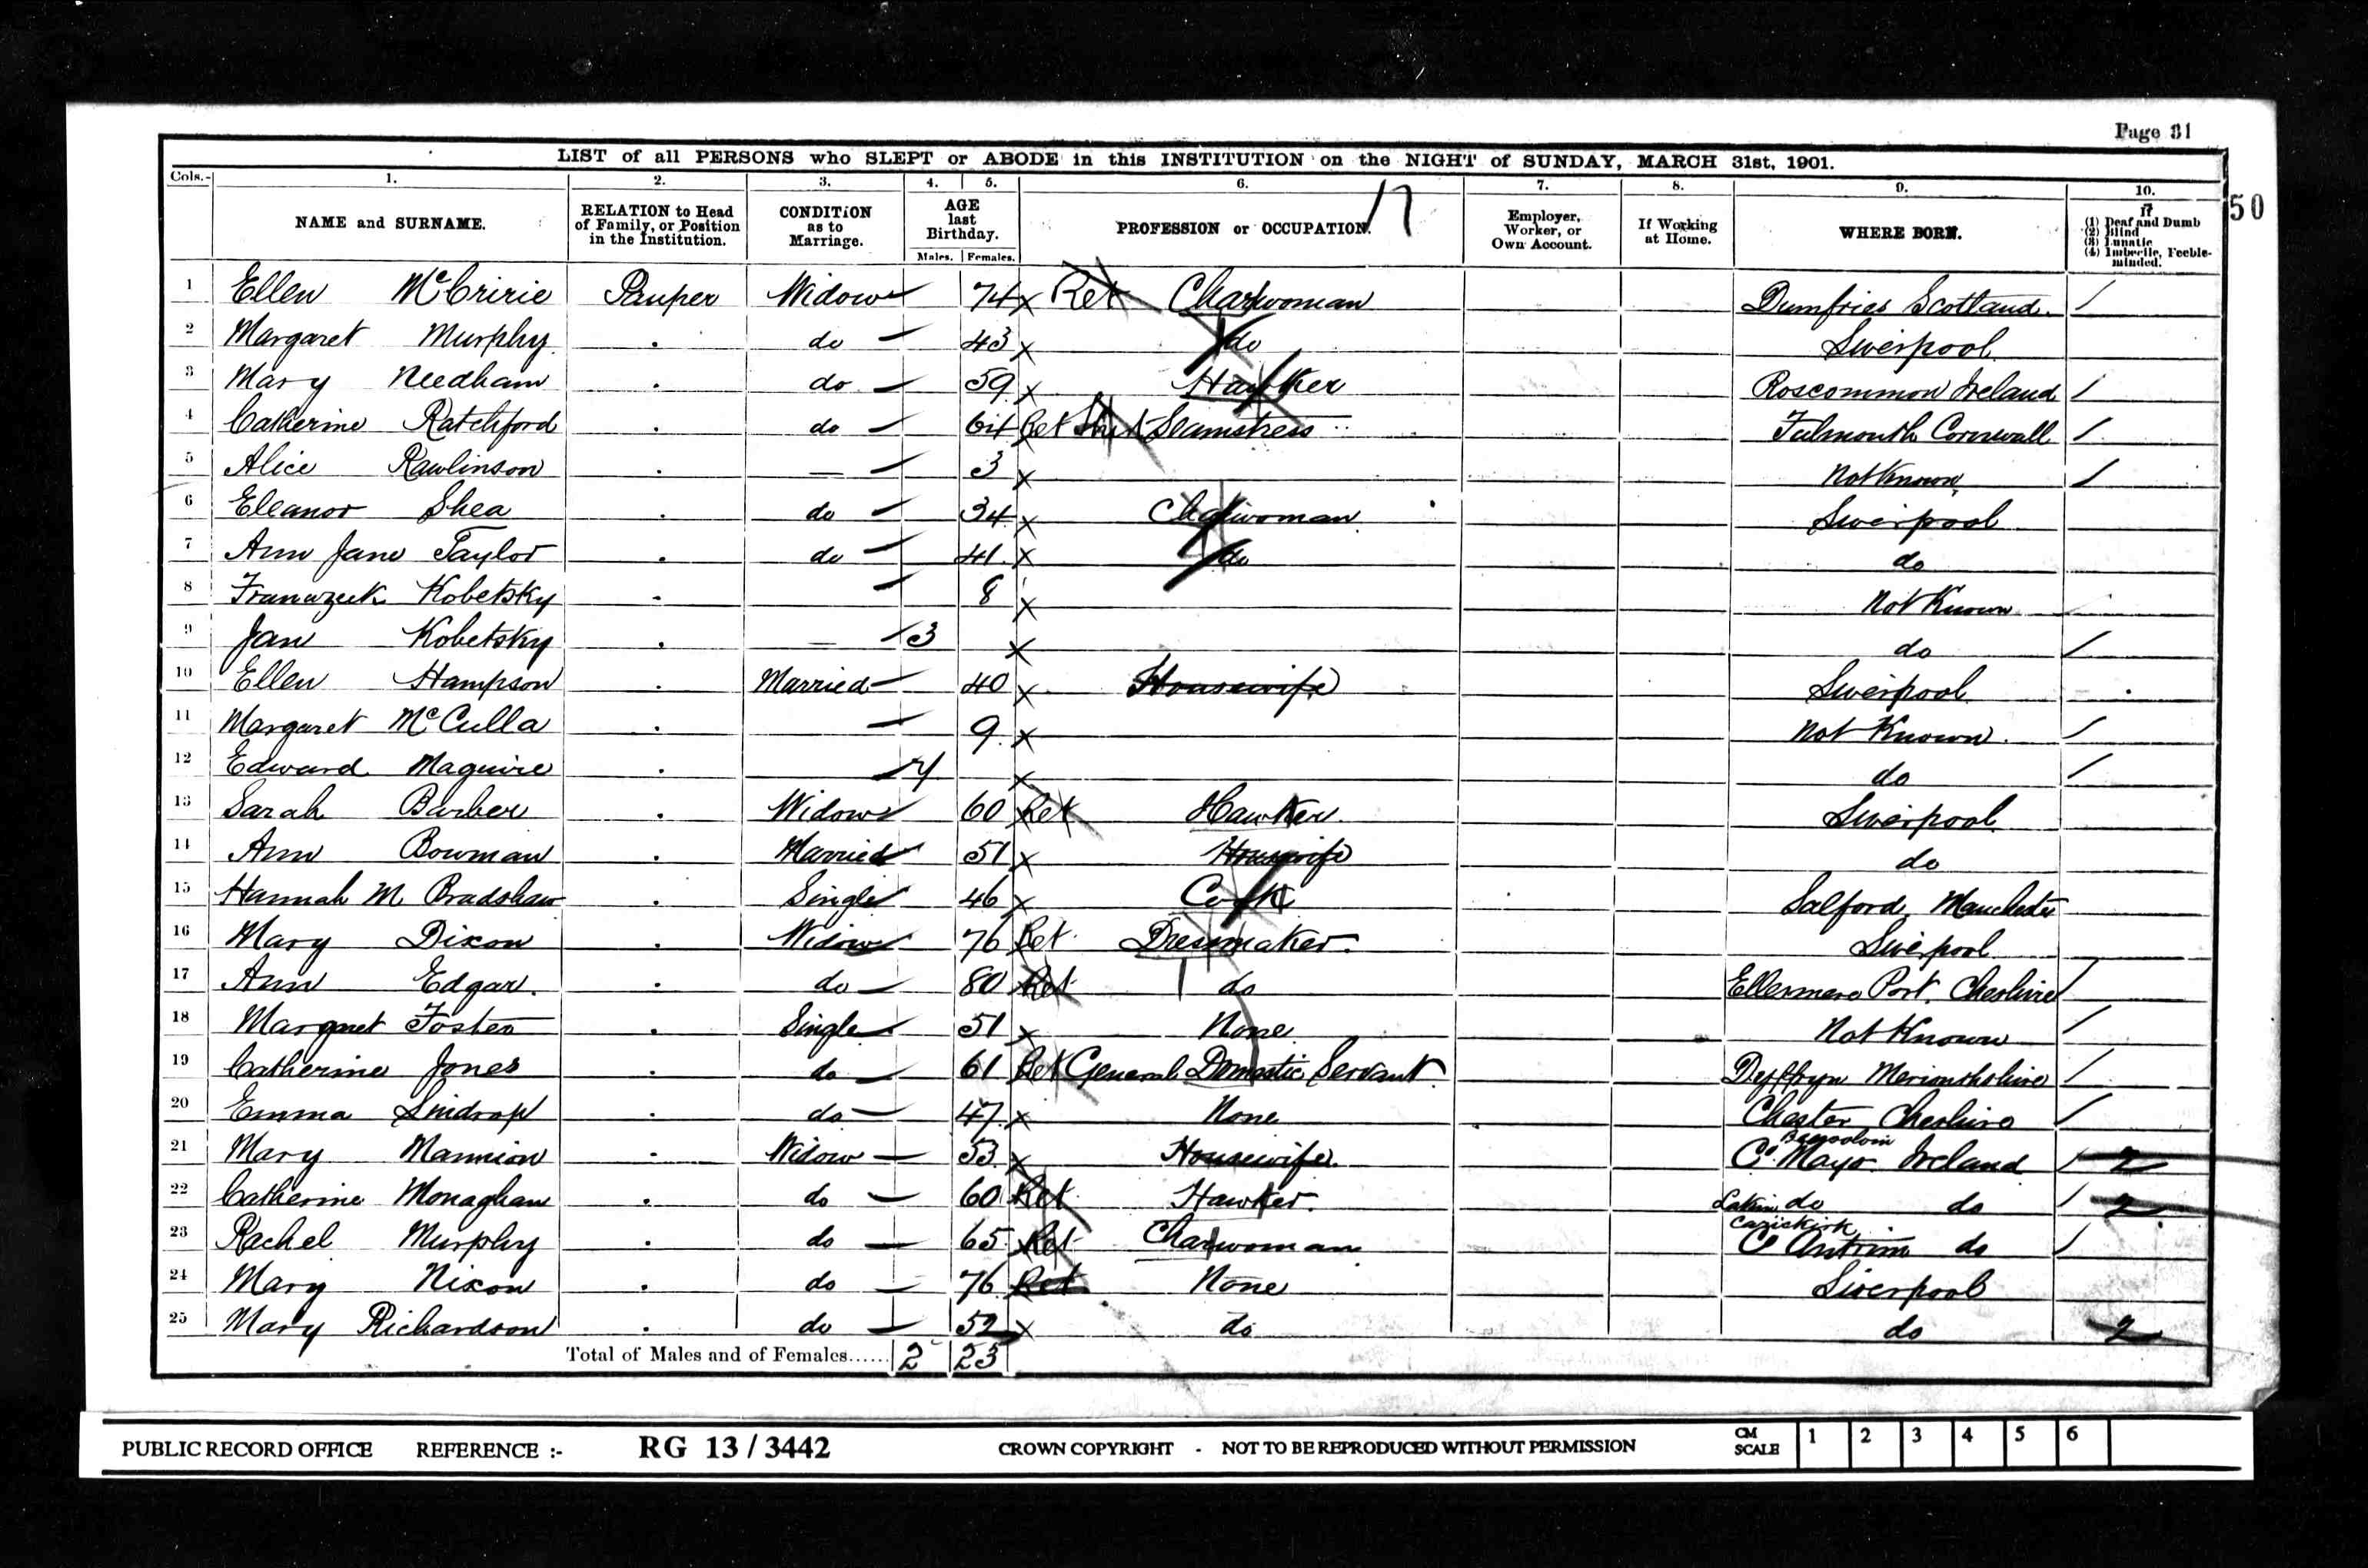 Page 31
LIST of all PERSONS who SLEPT or ABODE in this INSTITUTION on the NIGHT of SUNDAY, MARCH 31st, 1901.
Cols.- 1. 2. 3. 4. 5. 6. 7. 8. 9. 10.
NAME and SURNAME. RELATION to Head of Family, or Position in the Institution. CONDITION as to Marriage. AGE last Birthday. Males. Females. PROFESSION or OCCUPATION. Employer, Worker, or Own Account. If Working at Home. WHERE BORN. If (1) Deaf and Dumb (2) Blind (3) Lunatic (4) Imbecile, Feeble-minded.
17
50
1 Ellen McCririe Pauper Widow 74 x Ret Charwoman Dumfries Scotland.
2 Margaret Murphy . do 43 x do Liverpool
3 Mary Needham . do 59 x Hawker Roscommon Ireland
4 Catherine Ratchford . do 64 Ret Shirt Seamstress Falmouth Cornwall
5 Alice Rawlinson . — 3 x Not Known
6 Eleanor Shea . do 34 x Charwoman Liverpool
7 Ann Jane Taylor . do 41 x do do
8 Kobetsky . 8 x Not Known
9 Jan Kobetsky . — 3 x do
10 Ellen Hampson . Married 40 x Housewife Liverpool
11 Margaret McCulla . 9 x Not Known.
12 Edward Maguire . x do
13 Sarah Barber . Widow 60 Ret Hawker Liverpool
14 Ann Bowman . Married 51 x Housewife do
15 Hannah M Bradshaw . Single 46 x Cook Salford, Manchester
16 Mary Dixon . Widow 76 Ret Dressmaker. Liverpool
17 Ann Edgar. . do 80 Ret do Ellesmere Port. Cheshire
18 Margaret Foster . Single 51 x None Not Known
19 Catherine Jones . do 61 Ret General Domestic Servant. Dyffryn Merionethshire
20 Emma . do 47 x None Chester Cheshire
21 Mary Mannion . Widow 53 x Housewife. Co. Mayo Ireland 2
22 Catherine Monaghan . do 60 Ret Hawker. do do 2
23 Rachel Murphy . do 65 Ret Charwoman Co Antrim do
24 Mary Nixon . do 76 Ret None Liverpool
25 Mary Richardson . do 52 x do do 2
Total of Males and of Females...... 2 23
PUBLIC RECORD OFFICE REFERENCE :- RG 13 / 3442 CROWN COPYRIGHT - NOT TO BE REPRODUCED WITHOUT PERMISSION CM SCALE 1 2 3 4 5 6